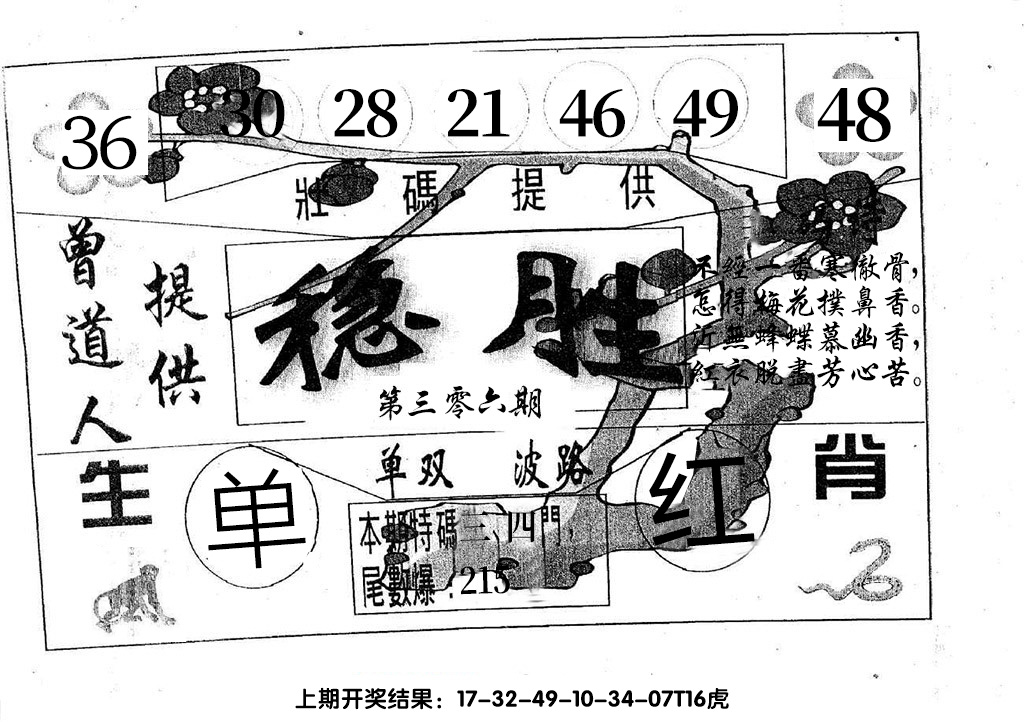 36 30 28 21 46 49 48
壯碼提供
曾道人
提供
稳胜
第三零六期
不經一番寒徹骨，
怎得梅花撲鼻香。
沂無蜂蝶慕幽香，
紅衣脱盡芳心苦。
生
肖
单双 波路
单
红
本期特碼三、四門，
尾數爆：215
上期开奖结果：17-32-49-10-34-07T16虎